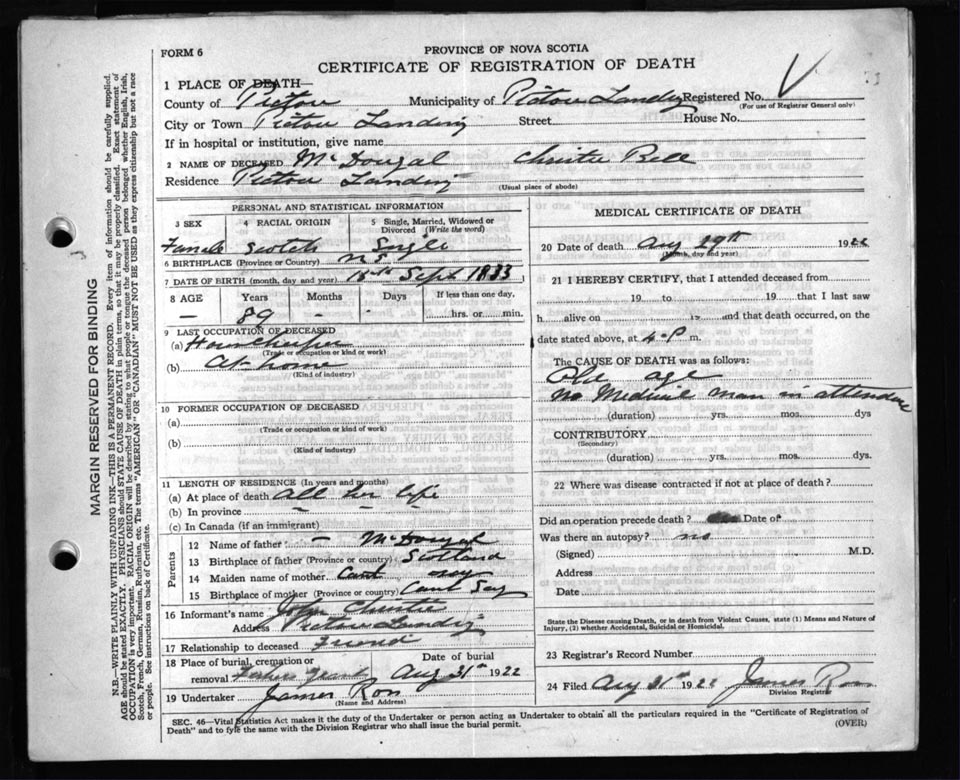 FORM 6
PROVINCE OF NOVA SCOTIA
CERTIFICATE OF REGISTRATION OF DEATH
1 PLACE OF DEATH
County of Pictou Municipality of Pictou Landing Registered No.
(For use of Registrar General only)
City or Town Pictou Landing Street House No.
If in hospital or institution, give name
2 NAME OF DECEASED McDougal Christie Bell
Residence Pictou Landing
(Usual place of abode)
MARGIN RESERVED FOR BINDING
N.B.—WRITE PLAINLY WITH UNFADING INK—THIS IS A PERMANENT RECORD. Every item of information should be carefully supplied.
AGE should be stated EXACTLY. PHYSICIANS should STATE CAUSE OF DEATH in plain terms, so that it may be properly classified. Exact statement of
OCCUPATION is very important. RACIAL ORIGIN will be described by stating to what people or tongue the deceased person belonged, whether English, Irish,
Scotch, French, German, Russian, Ruthenian, etc. The terms "AMERICAN" OR "CANADIAN" MUST NOT BE USED as they express citizenship but not a race
or people. See instructions on back of Certificate.
PERSONAL AND STATISTICAL INFORMATION
3 SEX 4 RACIAL ORIGIN 5 Single, Married, Widowed or
Divorced (Write the word)
Female Scotch Single
6 BIRTHPLACE (Province or Country) N S
7 DATE OF BIRTH (month, day and year) 18th Sept 1833
8 AGE Years Months Days If less than one day,
— 89 - - hrs. or min.
9 LAST OCCUPATION OF DECEASED
(a) Housekeeper
(Trade or occupation or kind or work)
(b) At home
(Kind of industry)
10 FORMER OCCUPATION OF DECEASED
(a)
(Trade or occupation or kind of work)
(b)
(Kind of industry)
11 LENGTH OF RESIDENCE (In years and months)
(a) At place of death all her life
(b) In province — — —
(c) In Canada (if an immigrant)
Parents
12 Name of father — McDougal
13 Birthplace of father (Province or country) Scotland
14 Maiden name of mother Cant say
15 Birthplace of mother (Province or country) Cant Say
16 Informant's name John Christie
Address Pictou Landing
17 Relationship to deceased Friend
18 Place of burial, cremation or Date of burial
removal Aug 31st 1922
19 Undertaker James Ross
(Name and Address)
MEDICAL CERTIFICATE OF DEATH
20 Date of death Aug 29th 1922
(Month, day and year)
21 I HEREBY CERTIFY, that I attended deceased from
19 to 19 that I last saw
h alive on 19 and that death occurred, on the
date stated above, at 4 P m.
The CAUSE OF DEATH was as follows:
Old age
no Medical man in attendance
(duration) yrs. mos. dys
CONTRIBUTORY
(Secondary)
(duration) yrs. mos. dys.
22 Where was disease contracted if not at place of death?
Did an operation precede death? Date of
Was there an autopsy? no
(Signed) M.D.
Address
Date
State the Disease causing Death, or in death from Violent Causes, state (1) Means and Nature of
Injury, (2) whether Accidental, Suicidal or Homicidal.
23 Registrar's Record Number
24 Filed Aug 31st 1922 James Ross
Division Registrar
SEC. 46—Vital Statistics Act makes it the duty of the Undertaker or person acting as Undertaker to obtain all the particulars required in the "Certificate of Registration of
Death" and to fyle the same with the Division Registrar who shall issue the burial permit. (OVER)